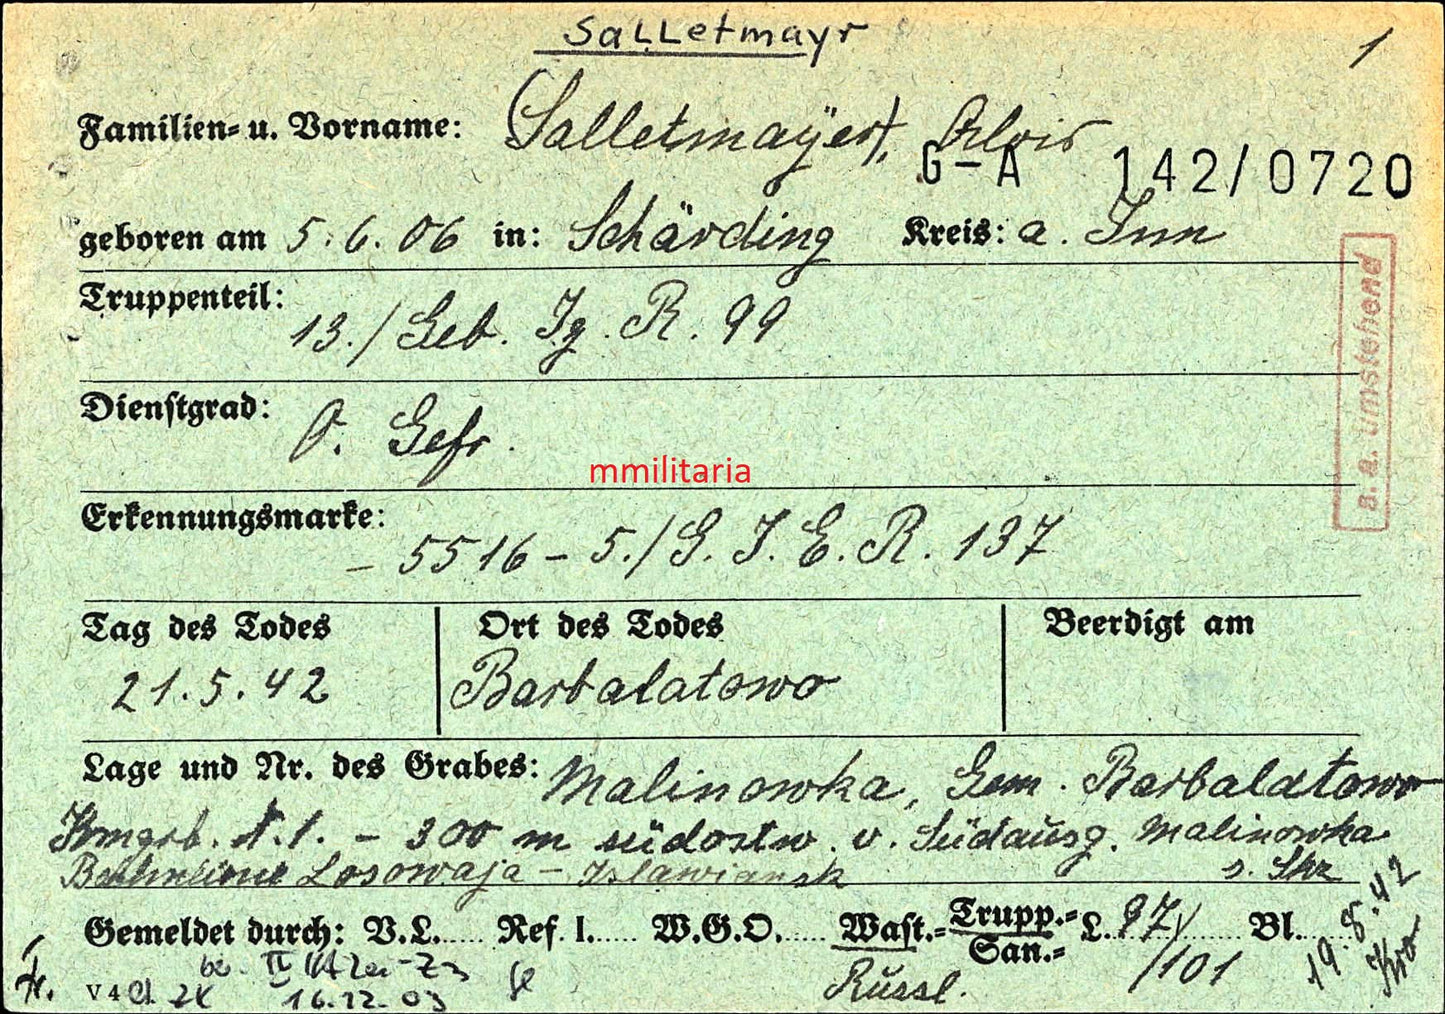 Salletmayr
1
Familien- u. Vorname: (Salletmayer), Alois
G-A 142/0720
geboren am 5.6.06 in: Schärding Kreis: a. Inn
Truppenteil: 13./Geb. Jg. R. 99
s. a. umstehend
Dienstgrad: O. Gefr.
mmilitaria
Erkennungsmarke: - 5516 - 5./G. J. E. R. 137
Tag des Todes Ort des Todes Beerdigt am
21.5.42 Barbalatowo
Lage und Nr. des Grabes: Malinowka, Gem. Barbalatowo
300 m südostw. v. Südausg. Malinowka
Losowaja - s. Skz
Gemeldet durch: V.L...... Ref. I...... W.G.O...... Wast.- Trupp.- San.- L. 97/ Bl.
Russl. /101 19.8.42
V 4
16.12.03